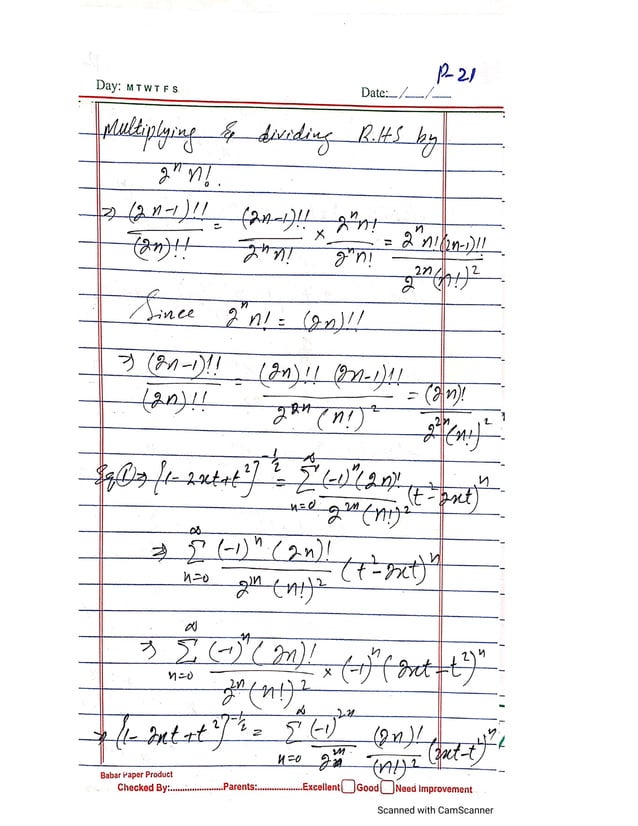 P-21
Day: M T W T F S Date:__/__/__
Multiplying & dividing R.H.S by
2ⁿ n!.
⇒ (2n-1)!!/(2n)!! = (2n-1)!!/2ⁿn! × 2ⁿn!/2ⁿn! = 2ⁿn!(2n-1)!!/2²ⁿ(n!)²
Since 2ⁿn! = (2n)!!
⇒ (2n-1)!!/(2n)!! = (2n)!! (2n-1)!!/2²ⁿ(n!)² = (2n)!/2²ⁿ(n!)²
Eq① ⇒ [1-2xt+t²]^(-1/2) = ∑_{n=0}^{∞} (-1)ⁿ(2n)!/2²ⁿ(n!)² (t²-2xt)ⁿ
⇒ ∑_{n=0}^{∞} (-1)ⁿ(2n)!/2²ⁿ(n!)² (t²-2xt)ⁿ
⇒ ∑_{n=0}^{∞} (-1)ⁿ(2n)!/2²ⁿ(n!)² × (-1)ⁿ(2xt-t²)ⁿ
⇒ [1-2xt+t²]^(-1/2) = ∑_{n=0}^{∞} (-1)²ⁿ/2²ⁿ (2n)!/(n!)² (2xt-t²)ⁿ
Babar Paper Product
Checked By:.....................Parents:.................Excellent Good Need Improvement
Scanned with CamScanner